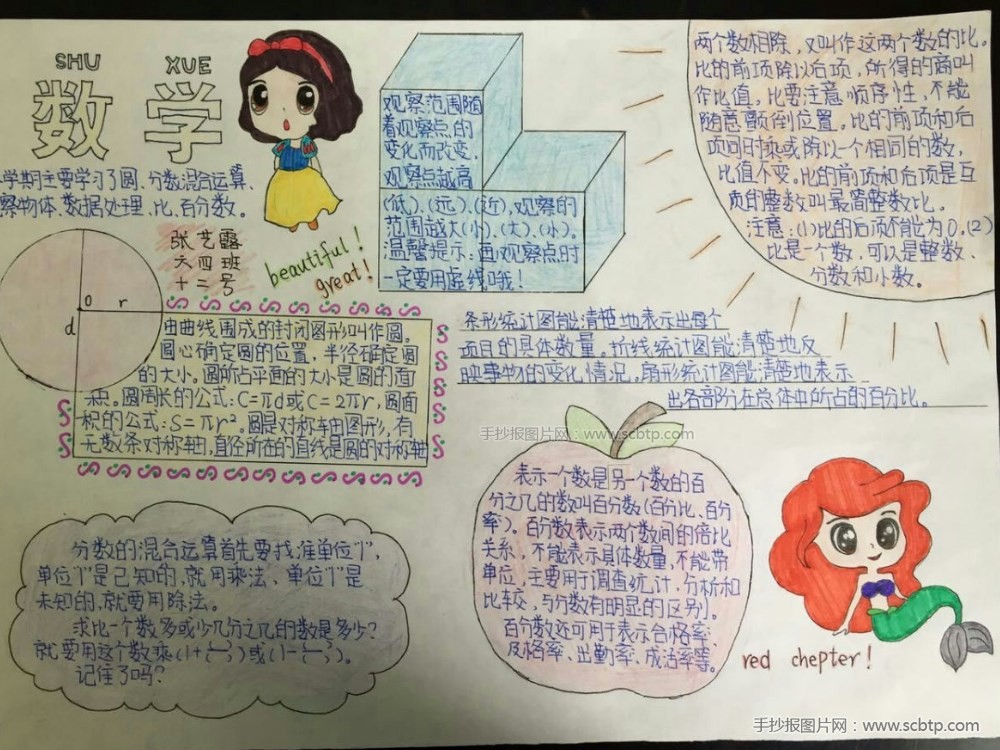 SHU XUE
数学
学期主要学习了圆、分数混合运算、
察物体、数据处理、比、百分数。
张艺露
六四班
十二号
beautiful!
great!
观察范围随
着观察点的
变化而改变,
观察点越高
(低)、(远)、(近),观察的
范围越大(小)、(大)、(小)。
温馨提示:画观察点时
一定要用虚线哦!
两个数相除,又叫作这两个数的比。
比的前项除以后项,所得的商叫
作比值。比要注意顺序性,不能
随意颠倒位置。比的前项和后
项同时乘或除以一个相同的数,
比值不变。比的前项和后项是互
质的整数叫最简整数比。
注意:(1)比的后项不能为0,(2)
比是一个数,可以是整数、
分数和小数。
o r
d
由曲线围成的封闭图形叫作圆。
圆心确定圆的位置,半径确定圆
的大小。圆所占平面的大小是圆的面
积。圆周长的公式:C=πd或C=2πr,圆面
积的公式:S=πr²。圆是对称轴图形,有
无数条对称轴,直径所在的直线是圆的对称轴
条形统计图能清楚地表示出每个
项目的具体数量,折线统计图能清楚地反
映事物的变化情况,扇形统计图能清楚地表示
出各部分在总体中所占的百分比。
手抄报图片网:www.scbtp.com
表示一个数是另一个数的百
分之几的数叫百分数(百分比、百分
率)。百分数表示两个数间的倍比
关系,不能表示具体数量,不能带
单位,主要用于调查统计,分析和
比较,与分数有明显的区别。
百分数还可用于表示合格率、
及格率、出勤率、成活率等。
分数的混合运算首先要找准单位“1”,
单位“1”是已知的,就用乘法、单位“1”是
未知的,就要用除法。
求比一个数多或少几分之几的数是多少?
就要用这个数乘(1+几/几)或(1-几/几)。
记住了吗?
red chepter!
手抄报图片网:www.scbtp.com